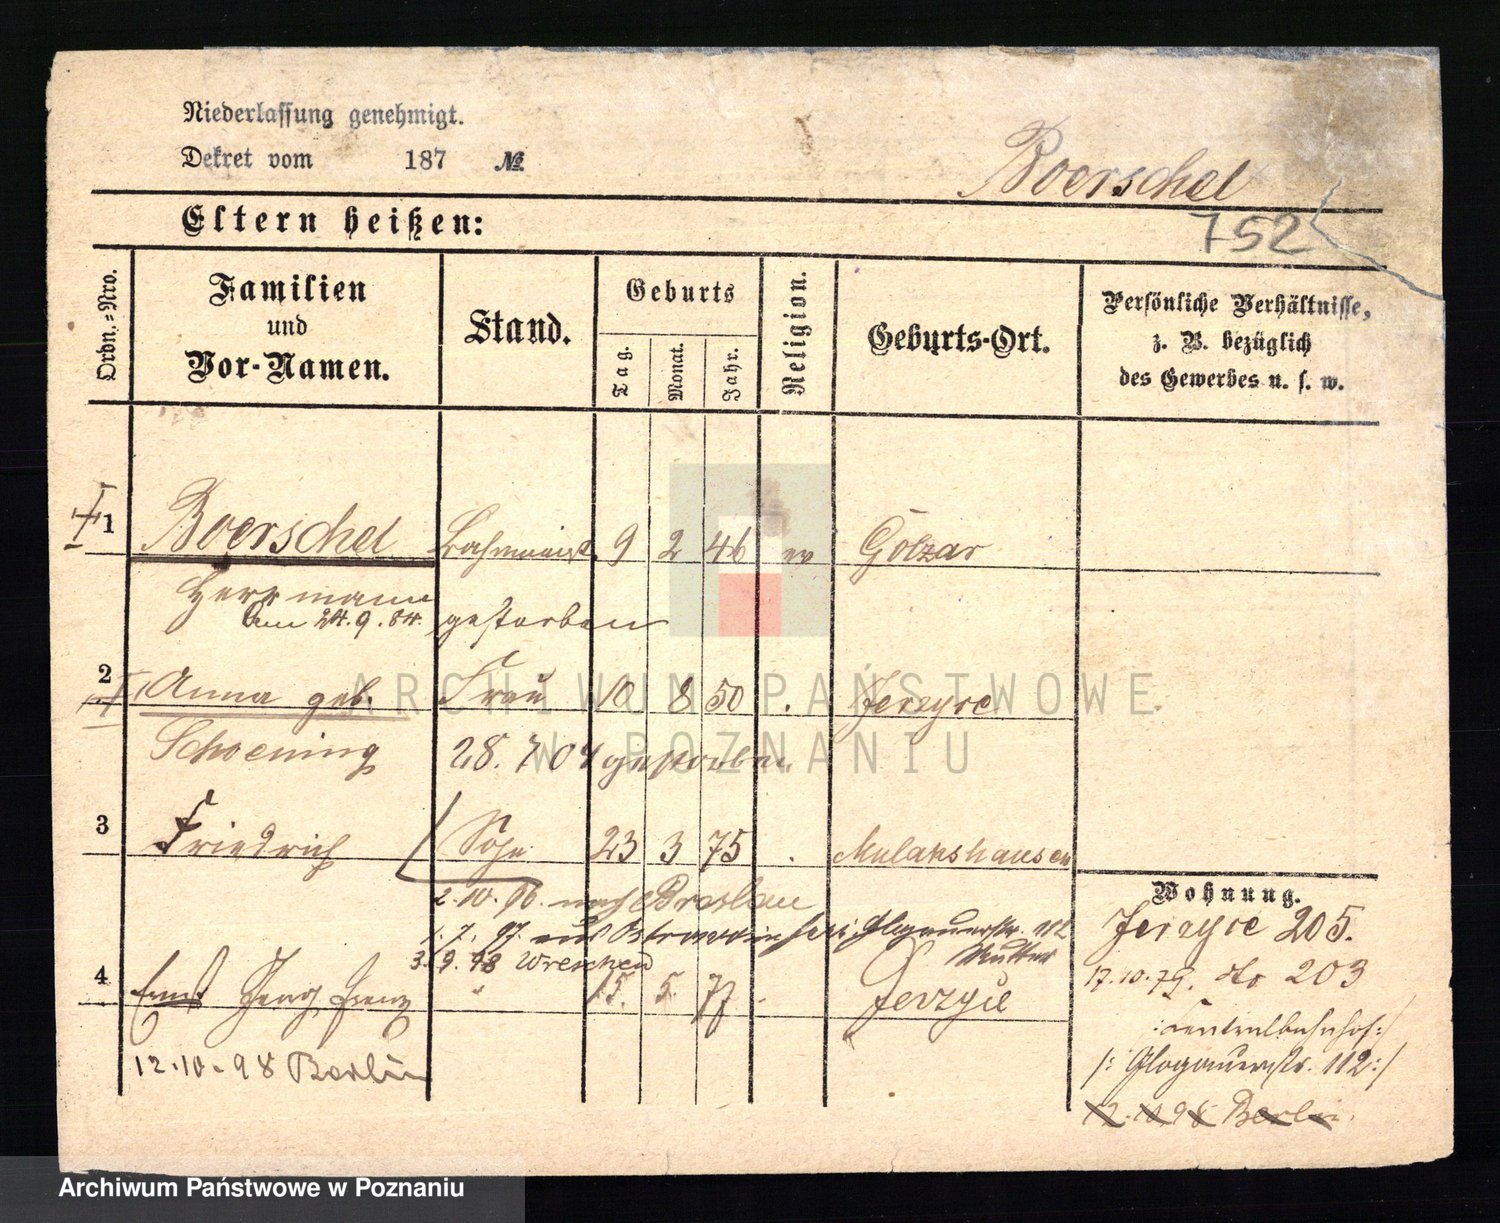 Niederlassung genehmigt.
Dekret vom 187 №
Boerschel
752
Eltern heißen:
Ordn.-Nro.
Familien und Vor-Namen.
Stand.
Geburts
Tag. Monat. Jahr.
Religion.
Geburts-Ort.
Persönliche Verhältnisse, z. B. bezüglich des Gewerbes u. s. w.
1 Boerschel 9 2 46 ev
Herrmann
am 24.9.84. gestorben
2 Anna geb. Frau 10 8 50 Jerzyce
Schoening 28.7.04 gestorben
3 Friedrich Sohn 23 3 75 Mulakshausen
2.10.96. nach Breslau
1.7.97. aus Glogauerstr. 112
3.9.98 Wreschen Mutter
4 Ernst Franz " 15. 5. 77 Jerzyce
12.10.98 Berlin
Wohnung.
Jerzyce 205.
17.10.79. dto 203
:Centralbahnhof:/
/: Glogauerstr. 112:/
12.10.98 Berlin.
ARCHIWUM PAŃSTWOWE
W POZNANIU
Archiwum Państwowe w Poznaniu